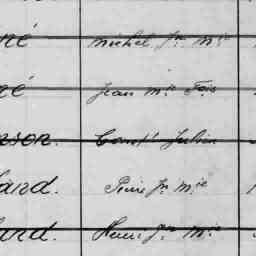 né michel Jn mie
né Jean mie Fois
nson. Const Julien
land. Pierre Jn mie
land. Henri Jn mie